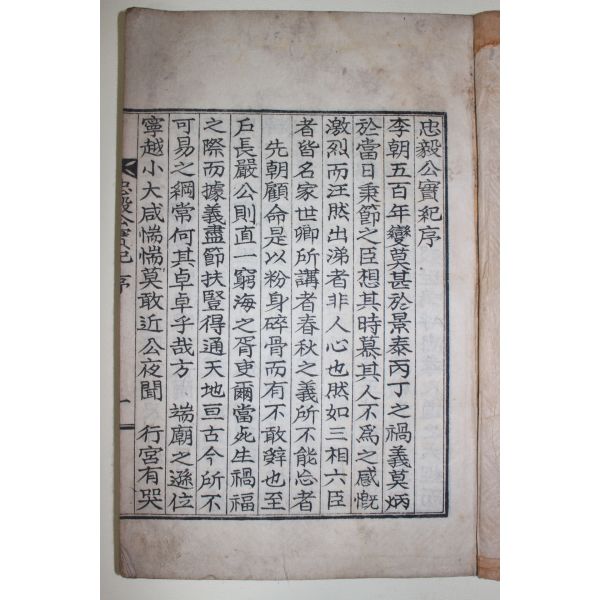 忠毅公實紀序
李朝五百年變莫甚於景泰丙丁之禍義莫炳
於當日秉節之臣想其時慕其人不爲之感慨
激烈而汪然出涕者非人心也然如三相六臣
者皆名家世卿所講者春秋之義所不能忘者
先朝顧命是以粉身碎骨而有不敢辭也至
戶長嚴公則直一窮海之胥吏爾當死生禍福
之際而據義盡節扶豎得通天地亘古今所不
可易之綱常何其卓卓乎哉方 端廟之遜位
寧越小大咸惴惴莫敢近公夜聞 行宮有哭
忠毅公實紀 序 一